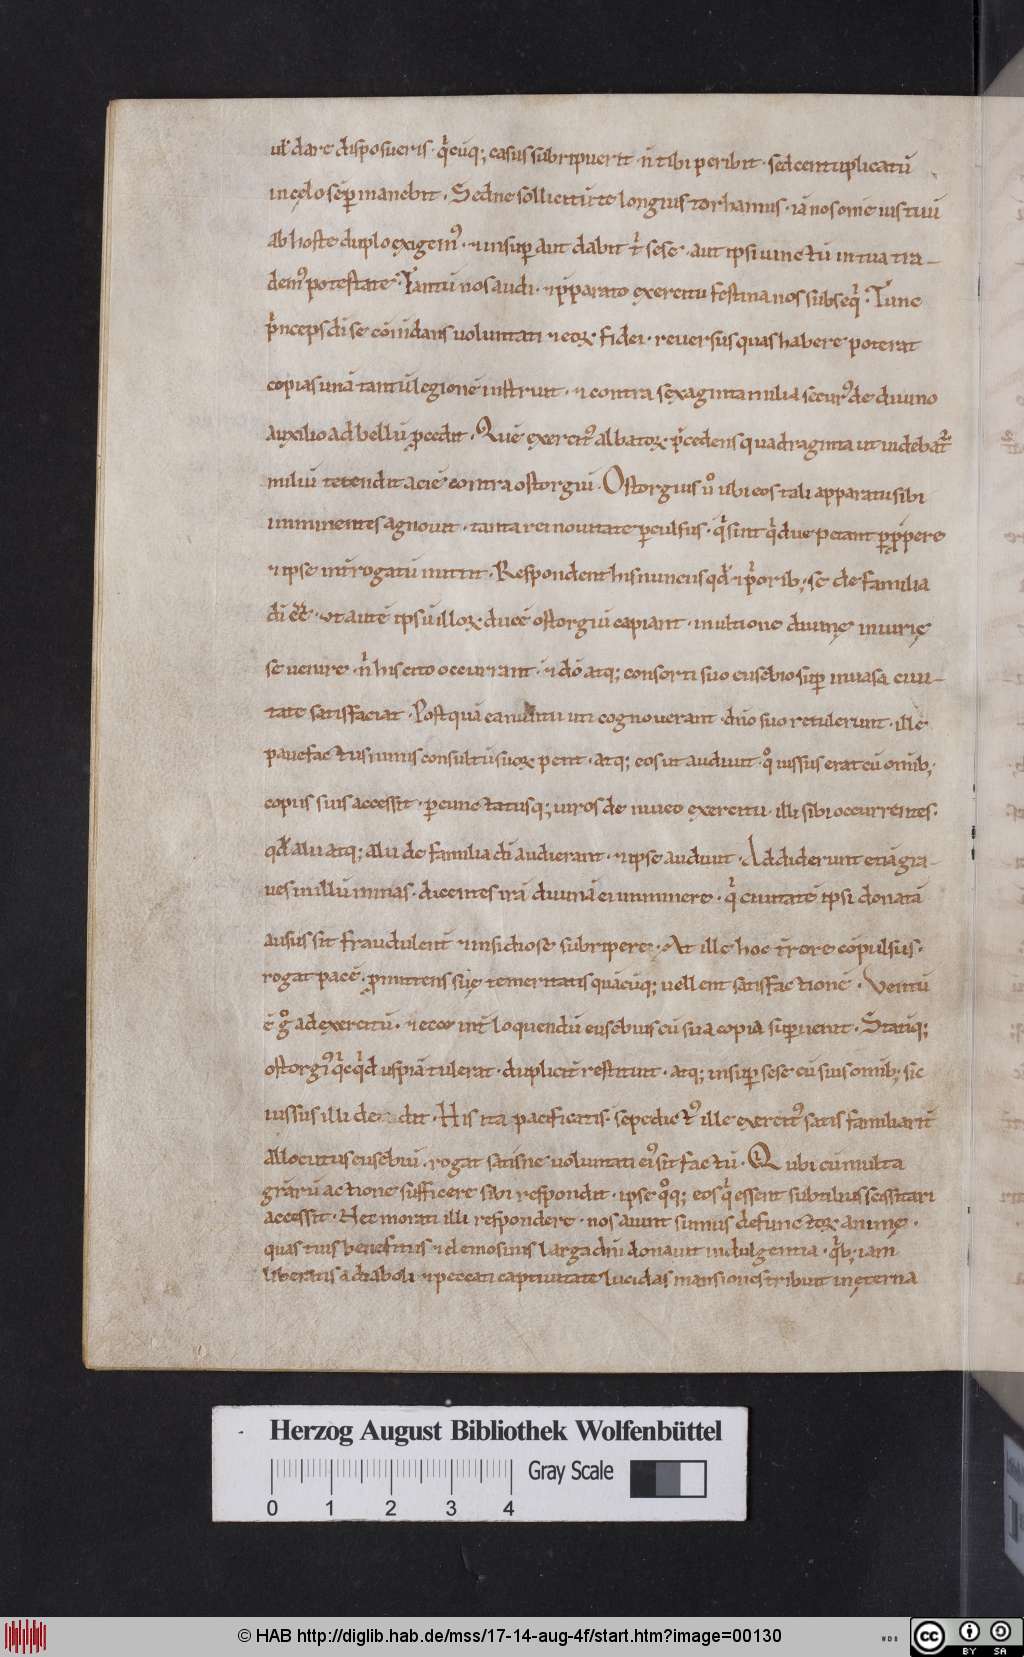 ul' dare disposueris · q̇cūq; casus subripuerit · n̄ tibi peribit · sed centuplicatū
in cęlo sēp manebit · Sed ne sollicitū te longius torhamus · iā nos om̄e ius tuū
ab hoste duplo exigem᾿ · & insup̄ aut dabit t̄ sese · aut ipsi uinctū in tua tra–
dem᾿ potestate · Tantū nos audi · & p̄parato exercitu festina nos subseq̇ · Tunc
p̄nceps di se cōmdans uoluntati & eoꝝ fidei · reuersus quas habere poterat
copias unā tantū legionē instruit · & contra sexaginta milia secur᾿ de diuino
auxilio ad bellū p̄cedit · Quē exercit᾿ albatoꝝ p̄cedens quadraginta ut uidebat᾿
miliū tetendit aciē contra ostorgiū · Ostorgius u̇ ubi eos tali apparatu sibi
imminentes agnouit · tanta rei nouitate p̄culsus · q̇ sint q̇due petant p̄p̄pere
& ipse int̄rogatū mittit · Respondent his nuncius qd̄ & p̄orib; · se de familia
di eē · ut autē ipsū illoꝝ ducē ostorgiū capiant · in ultione diuinę iniurię
se uenire · n̄ his cito occurrant · & dō atq; consorti suo eusebio sup̄ inuasa ciui–
tate satisfaciat · Postquā ea multū uti cognouerant · dn̄o suo retulerunt · ille
pauefactus nimis consultū suoꝝ petit · atq; eos ut audiuit · q᾿ iussus erat cū omīb;
copiis suis accessit · p̄cunctatusq; uiros de niueo exercitu · illi sibi occurrentes ·
qd̄ alii atq; alii de familia di audierant · & ipse audiuit · Addiderunt etiā gra–
ues in illū minas · dicentes irā diuinā ei imminere · q̇ ciuitatē ipsi donatā
ausus sit fraudulent̄ & insidiose subripere · At ille hoc t̄rore cōpulsus ·
rogat pacē · p̄mittens suę temeritatis quācūq; uellent satisfactionē · Ventū
ē g᾿ ad exercitū · & ecce int̄ loquendū eusebius cū sua copia sup̄uenit · Statīq;
ostorgi᾿ q̇cq̇d uspiā tulerat · duplicit̄ restituit · atq; insup̄ sese cū suis omīb; sic
iussus illi de dit · His ita pacificatis · sepedict᾿ ille exercit᾿ satis familiarit̄
allocutus eusebiū · rogat satisne uoluntati ei᾿ sit factū · Qui ubi cū multa
gr̄arū actione sufficere sibi respondit · ipse q᾿q; eos q̇ essent subtilius sciscitari
accessit · Nec morati illi respondere · nos aiunt sumus defunctoꝝ animę ·
quas tuis beneficiis & elemosinis larga dn̄i donauit indulgentia · q̇b; iam
liberatis a diaboli & peccati captiuitate lucidas mansiones tribuit in ęterna
Herzog August Bibliothek Wolfenbüttel
Gray Scale
0 1 2 3 4
© HAB http://diglib.hab.de/mss/17-14-aug-4f/start.htm?image=00130
WDB
cc BY SA